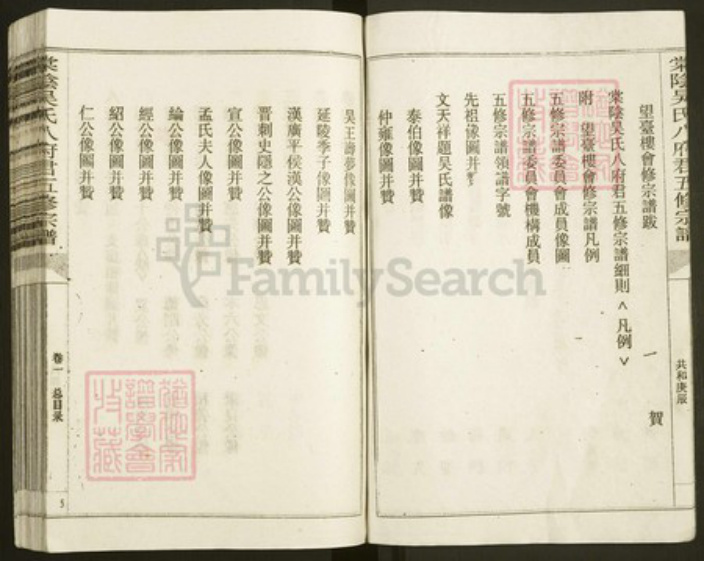 棠陰吳氏八府君五修宗譜
共和庚辰
望臺樓會修宗譜跋
一 賀
棠陰吳氏八府君五修宗譜細則<凡例>
附 望臺樓會修宗譜凡例
五修宗譜委員會成員像圖
五修宗譜委員會機構成員
五修宗譜領譜字號
先祖像圖并
文天祥題吳氏譜像
泰伯像圖并贊
仲雍像圖并贊
吳王壽夢像圖并贊
延陵季子像圖并贊
漢廣平侯漢公像圖并贊
晋刺史隱之公像圖并贊
宣公像圖并贊
孟氏夫人像圖并贊
綸公像圖并贊
經公像圖并贊
紹公像圖并贊
仁公像圖并贊
棠陰吳氏八府君五修宗譜
卷一 总目录
5
FamilySearch